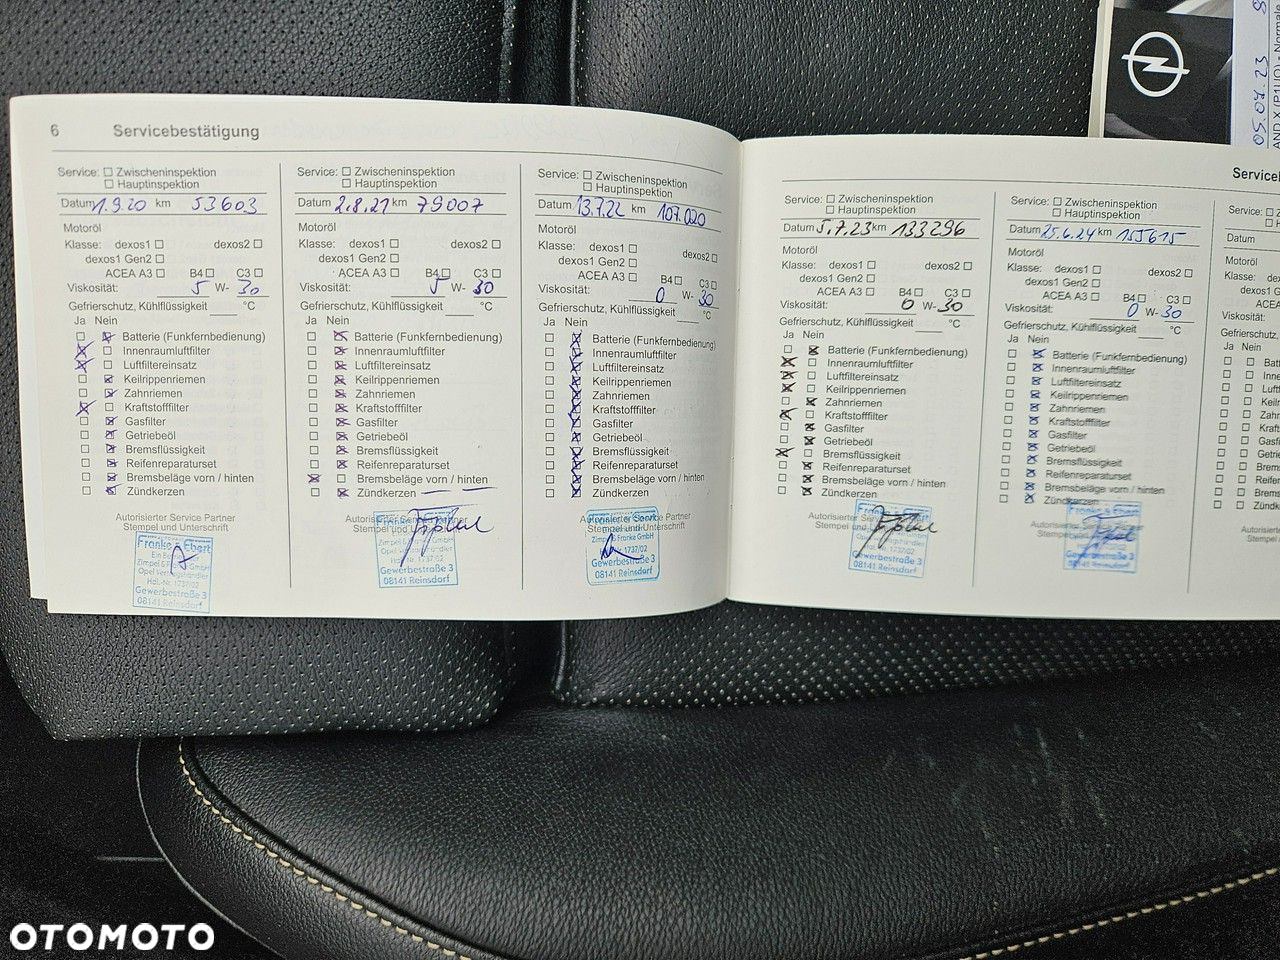 6 Servicebestätigung
Service: Zwischeninspektion
Hauptinspektion
Datum 1.9.20 km 53603
Motoröl
Klasse: dexos1 dexos2
dexos1 Gen2
ACEA A3 B4 C3
Viskosität: 5 W- 30
Gefrierschutz, Kühlflüssigkeit °C
Ja Nein
Batterie (Funkfernbedienung)
Innenraumluftfilter
Luftfiltereinsatz
Keilrippenriemen
Zahnriemen
Kraftstofffilter
Gasfilter
Getriebeöl
Bremsflüssigkeit
Reifenreparaturset
Bremsbeläge vorn / hinten
Zündkerzen
Autorisierter Service Partner
Stempel und Unterschrift
Franke & Ebert
Gewerbestraße 3
08141 Reinsdorf
Service: Zwischeninspektion
Hauptinspektion
Datum 2.8.21 km 79007
Motoröl
Klasse: dexos1 dexos2
dexos1 Gen2
ACEA A3 B4 C3
Viskosität: 5 W- 30
Gefrierschutz, Kühlflüssigkeit °C
Ja Nein
Batterie (Funkfernbedienung)
Innenraumluftfilter
Luftfiltereinsatz
Keilrippenriemen
Zahnriemen
Kraftstofffilter
Gasfilter
Getriebeöl
Bremsflüssigkeit
Reifenreparaturset
Bremsbeläge vorn / hinten
Zündkerzen
Autorisierter Service Partner
Stempel und Unterschrift
Gewerbestraße 3
08141 Reinsdorf
Service: Zwischeninspektion
Hauptinspektion
Datum 13.7.22 km 107.020
Motoröl
Klasse: dexos1 dexos2
dexos1 Gen2
ACEA A3 B4 C3
Viskosität: 0 W- 30
Gefrierschutz, Kühlflüssigkeit °C
Ja Nein
Batterie (Funkfernbedienung)
Innenraumluftfilter
Luftfiltereinsatz
Keilrippenriemen
Zahnriemen
Kraftstofffilter
Gasfilter
Getriebeöl
Bremsflüssigkeit
Reifenreparaturset
Bremsbeläge vorn / hinten
Zündkerzen
Autorisierter Service Partner
Stempel und Unterschrift
Zimpel & Franke GmbH
Hdl.-Nr. 1737/02
Gewerbestraße 3
08141 Reinsdorf
Service: Zwischeninspektion
Hauptinspektion
Datum 5.7.23 km 133296
Motoröl
Klasse: dexos1 dexos2
dexos1 Gen2
ACEA A3 B4 C3
Viskosität: 0 W- 30
Gefrierschutz, Kühlflüssigkeit °C
Ja Nein
Batterie (Funkfernbedienung)
Innenraumluftfilter
Luftfiltereinsatz
Keilrippenriemen
Zahnriemen
Kraftstofffilter
Gasfilter
Getriebeöl
Bremsflüssigkeit
Reifenreparaturset
Bremsbeläge vorn / hinten
Zündkerzen
Autorisierter Service Partner
Stempel und Unterschrift
Gewerbestraße 3
08141 Reinsdorf
Service: Zwischeninspektion
Hauptinspektion
Datum 25.6.24 km 155615
Motoröl
Klasse: dexos1 dexos2
dexos1 Gen2
ACEA A3 B4 C3
Viskosität: 0 W- 30
Gefrierschutz, Kühlflüssigkeit °C
Ja Nein
Batterie (Funkfernbedienung)
Innenraumluftfilter
Luftfiltereinsatz
Keilrippenriemen
Zahnriemen
Kraftstofffilter
Gasfilter
Getriebeöl
Bremsflüssigkeit
Reifenreparaturset
Bremsbeläge vorn / hinten
Zündkerzen
Gewerbestraße 3
08141 Reinsdorf
Service:
Datum
Motoröl
Klasse:
Viskosität:
Ja Nein
05.09.23
OTOMOTO